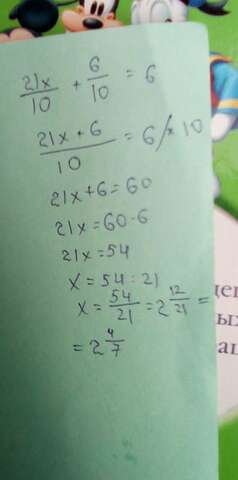 21x/10 + 6/10 = 6
21x + 6/10 = 6 /× 10
21x+6=60
21x=60-6
21x=54
x=54:21
x=54/21=2 12/21=
=2 4/7